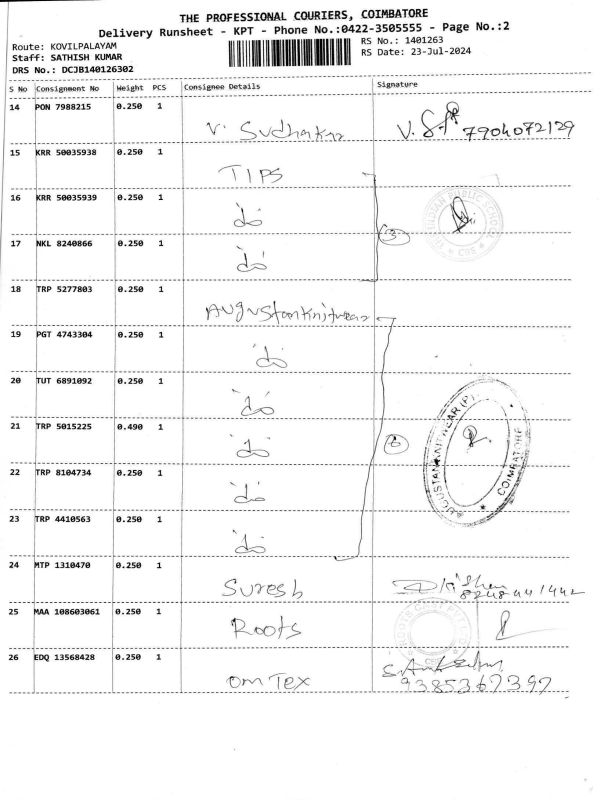 THE PROFESSIONAL COURIERS, COIMBATORE
Delivery Runsheet - KPT - Phone No.:0422-3505555 - Page No.:2
Route: KOVILPALAYAM
Staff: SATHISH KUMAR
DRS No.: DCJB140126302
RS No.: 1401263
RS Date: 23-Jul-2024
S No Consignment No Weight PCS Consignee Details Signature
14 PON 7988215 0.250 1 V. Sudhakar 7904072129
15 KRR 50035938 0.250 1 TIPS
16 KRR 50035939 0.250 1 do
17 NKL 8240866 0.250 1 do
3
THE INDIAN PUBLIC SCHOOL
CBE
18 TRP 5277803 0.250 1 Augustan Knitwear
19 PGT 4743304 0.250 1 do
20 TUT 6891092 0.250 1 do
21 TRP 5015225 0.490 1 do
22 TRP 8104734 0.250 1 do
23 TRP 4410563 0.250 1 do
6
AUGUSTAN KNITWEAR (P)
COIMBATORE
24 MTP 1310470 0.250 1 Suresh 8248441442
25 MAA 108603061 0.250 1 Roots
26 EDQ 13568428 0.250 1 Om Tex
9385367397